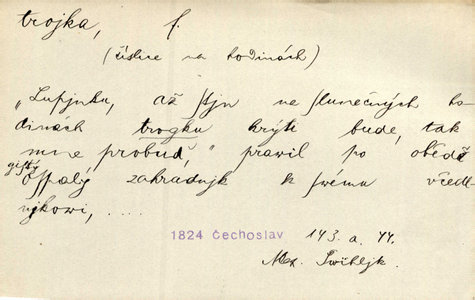 trojka, f.
(číslice na hodinách)
„Lupjnku, až stjn na slunečných ho-
dinách trogku krýti bude, tak
mne probuď," pravil po obědě
gistý
ospalý zahradnjk k swému včedl-
njkowi, . . . .
1824 Čechoslav 143. a. 44.
Mex.